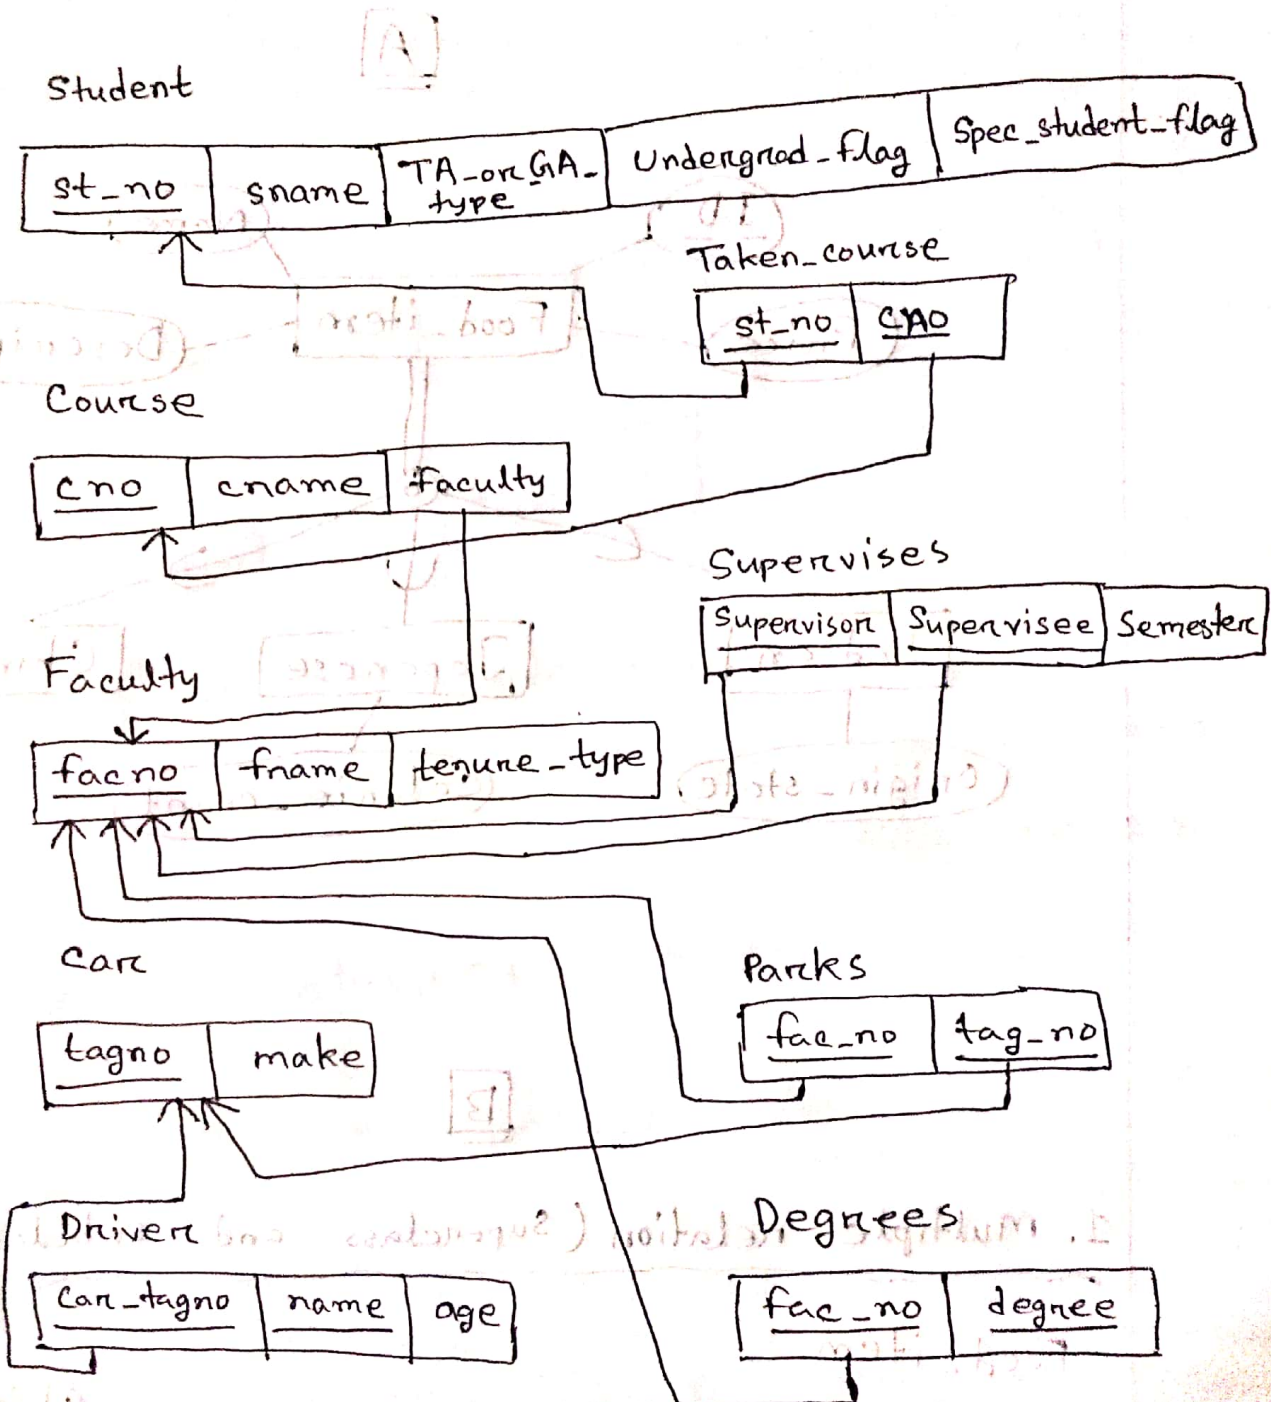 Student
st_no sname TA_or_GA_ type Undergrad_flag Spec_student_flag
Taken_course
st_no cno
Course
cno cname faculty
Supervises
Supervisor Supervisee Semester
Faculty
facno fname tenure_type
Car
tagno make
Parks
fac_no tag_no
Driver
Car_tagno name age
Degrees
fac_no degree